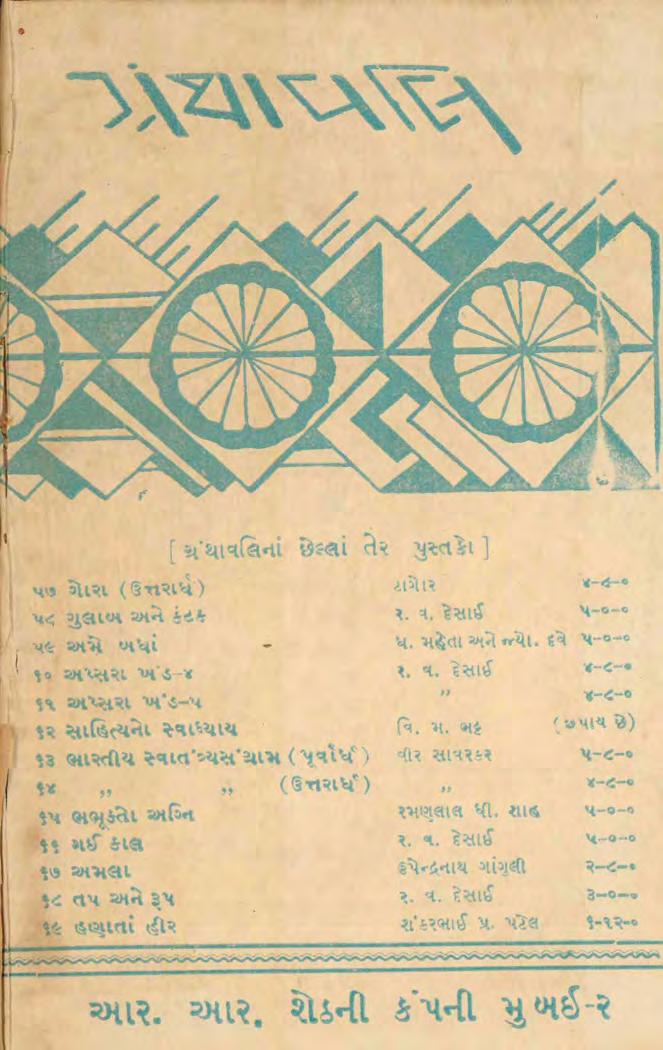 ગ્રંથાવલિ
[ ગ્રંથાવલિનાં છેલ્લાં તેર પુસ્તકો ]
૫૭ ગોરા (ઉત્તરાર્ધ) ટાગોર ૪-૮-૦
૫૮ ગુલાબ અને કંટક ર. વ. દેસાઈ ૫-૦-૦
૫૯ અમે બધાં ધ. મહેતા અને જ્યો. દવે ૫-૦-૦
૬૦ અપ્સરા ખંડ-૪ ર. વ. દેસાઈ ૪-૮-૦
૬૧ અપ્સરા ખંડ-૫ ,, ૪-૮-૦
૬૨ સાહિત્યનો સ્વાધ્યાય વિ. મ. ભટ્ટ (છપાય છે)
૬૩ ભારતીય સ્વાતંત્ર્યસંગ્રામ (પૂર્વાર્ધ) વીર સાવરકર ૫-૮-૦
૬૪ ,, ,, (ઉત્તરાર્ધ) ,, ૪-૮-૦
૬૫ ભભૂક્તો અગ્નિ રમણલાલ ધી. શાહ ૫-૦-૦
૬૬ ગઈ કાલ ર. વ. દેસાઈ ૫-૦-૦
૬૭ અમલા ઉપેન્દ્રનાથ ગાંગુલી ૨-૮-૦
૬૮ તપ અને રૂપ ર. વ. દેસાઈ ૩-૦-૦
૬૯ હણાતાં હીર શંકરભાઈ પ્ર. પટેલ ૧-૧૨-૦
આર. આર. શેઠની કંપની મુંબઈ-૨